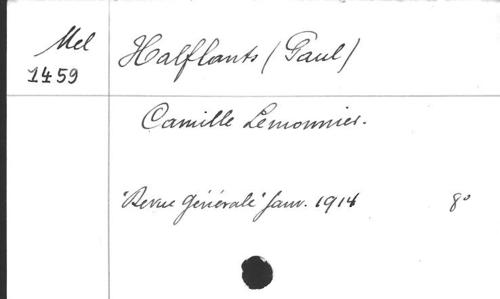 Mel
1459
Halflants (Paul)
Camille Lemonnier.
"Revue générale" Janv. 1914
8°